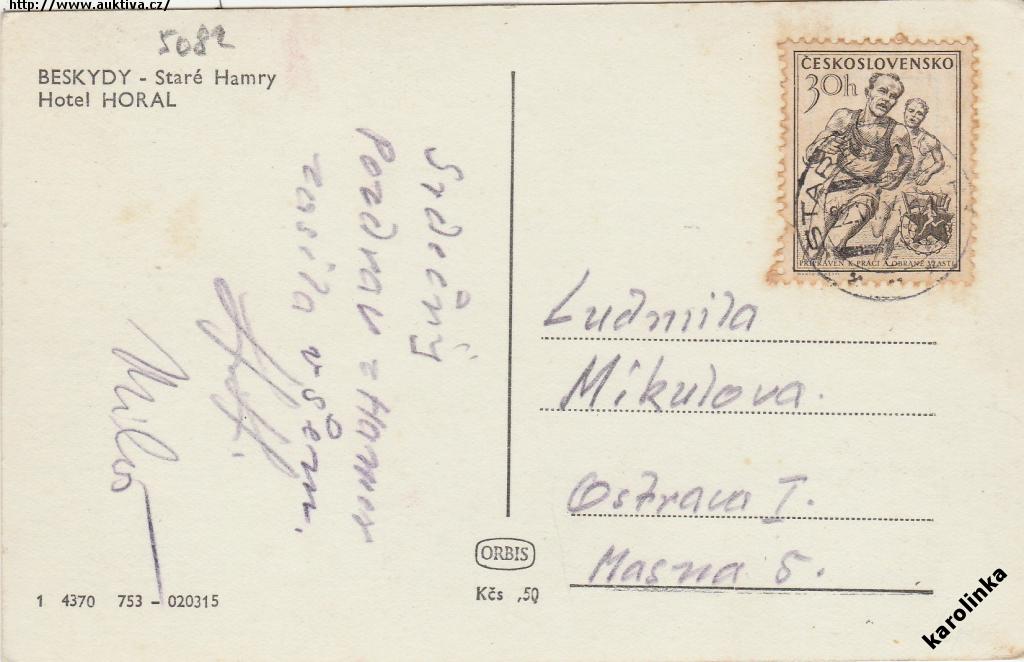 http://www.auktiva.cz/
5082
BESKYDY - Staré Hamry
Hotel HORAL
Srdečný
Pozdrav z Hamer
zasílá všem.
Milos
1 4370 753 - 020315
ORBIS
Kčs ,50
ČESKOSLOVENSKO
30h
PŘIPRAVEN K PRÁCI A OBRANĚ VLASTI
STAR
Ludmila
Mikulova.
Ostrava I.
Masna 5.
karolinka